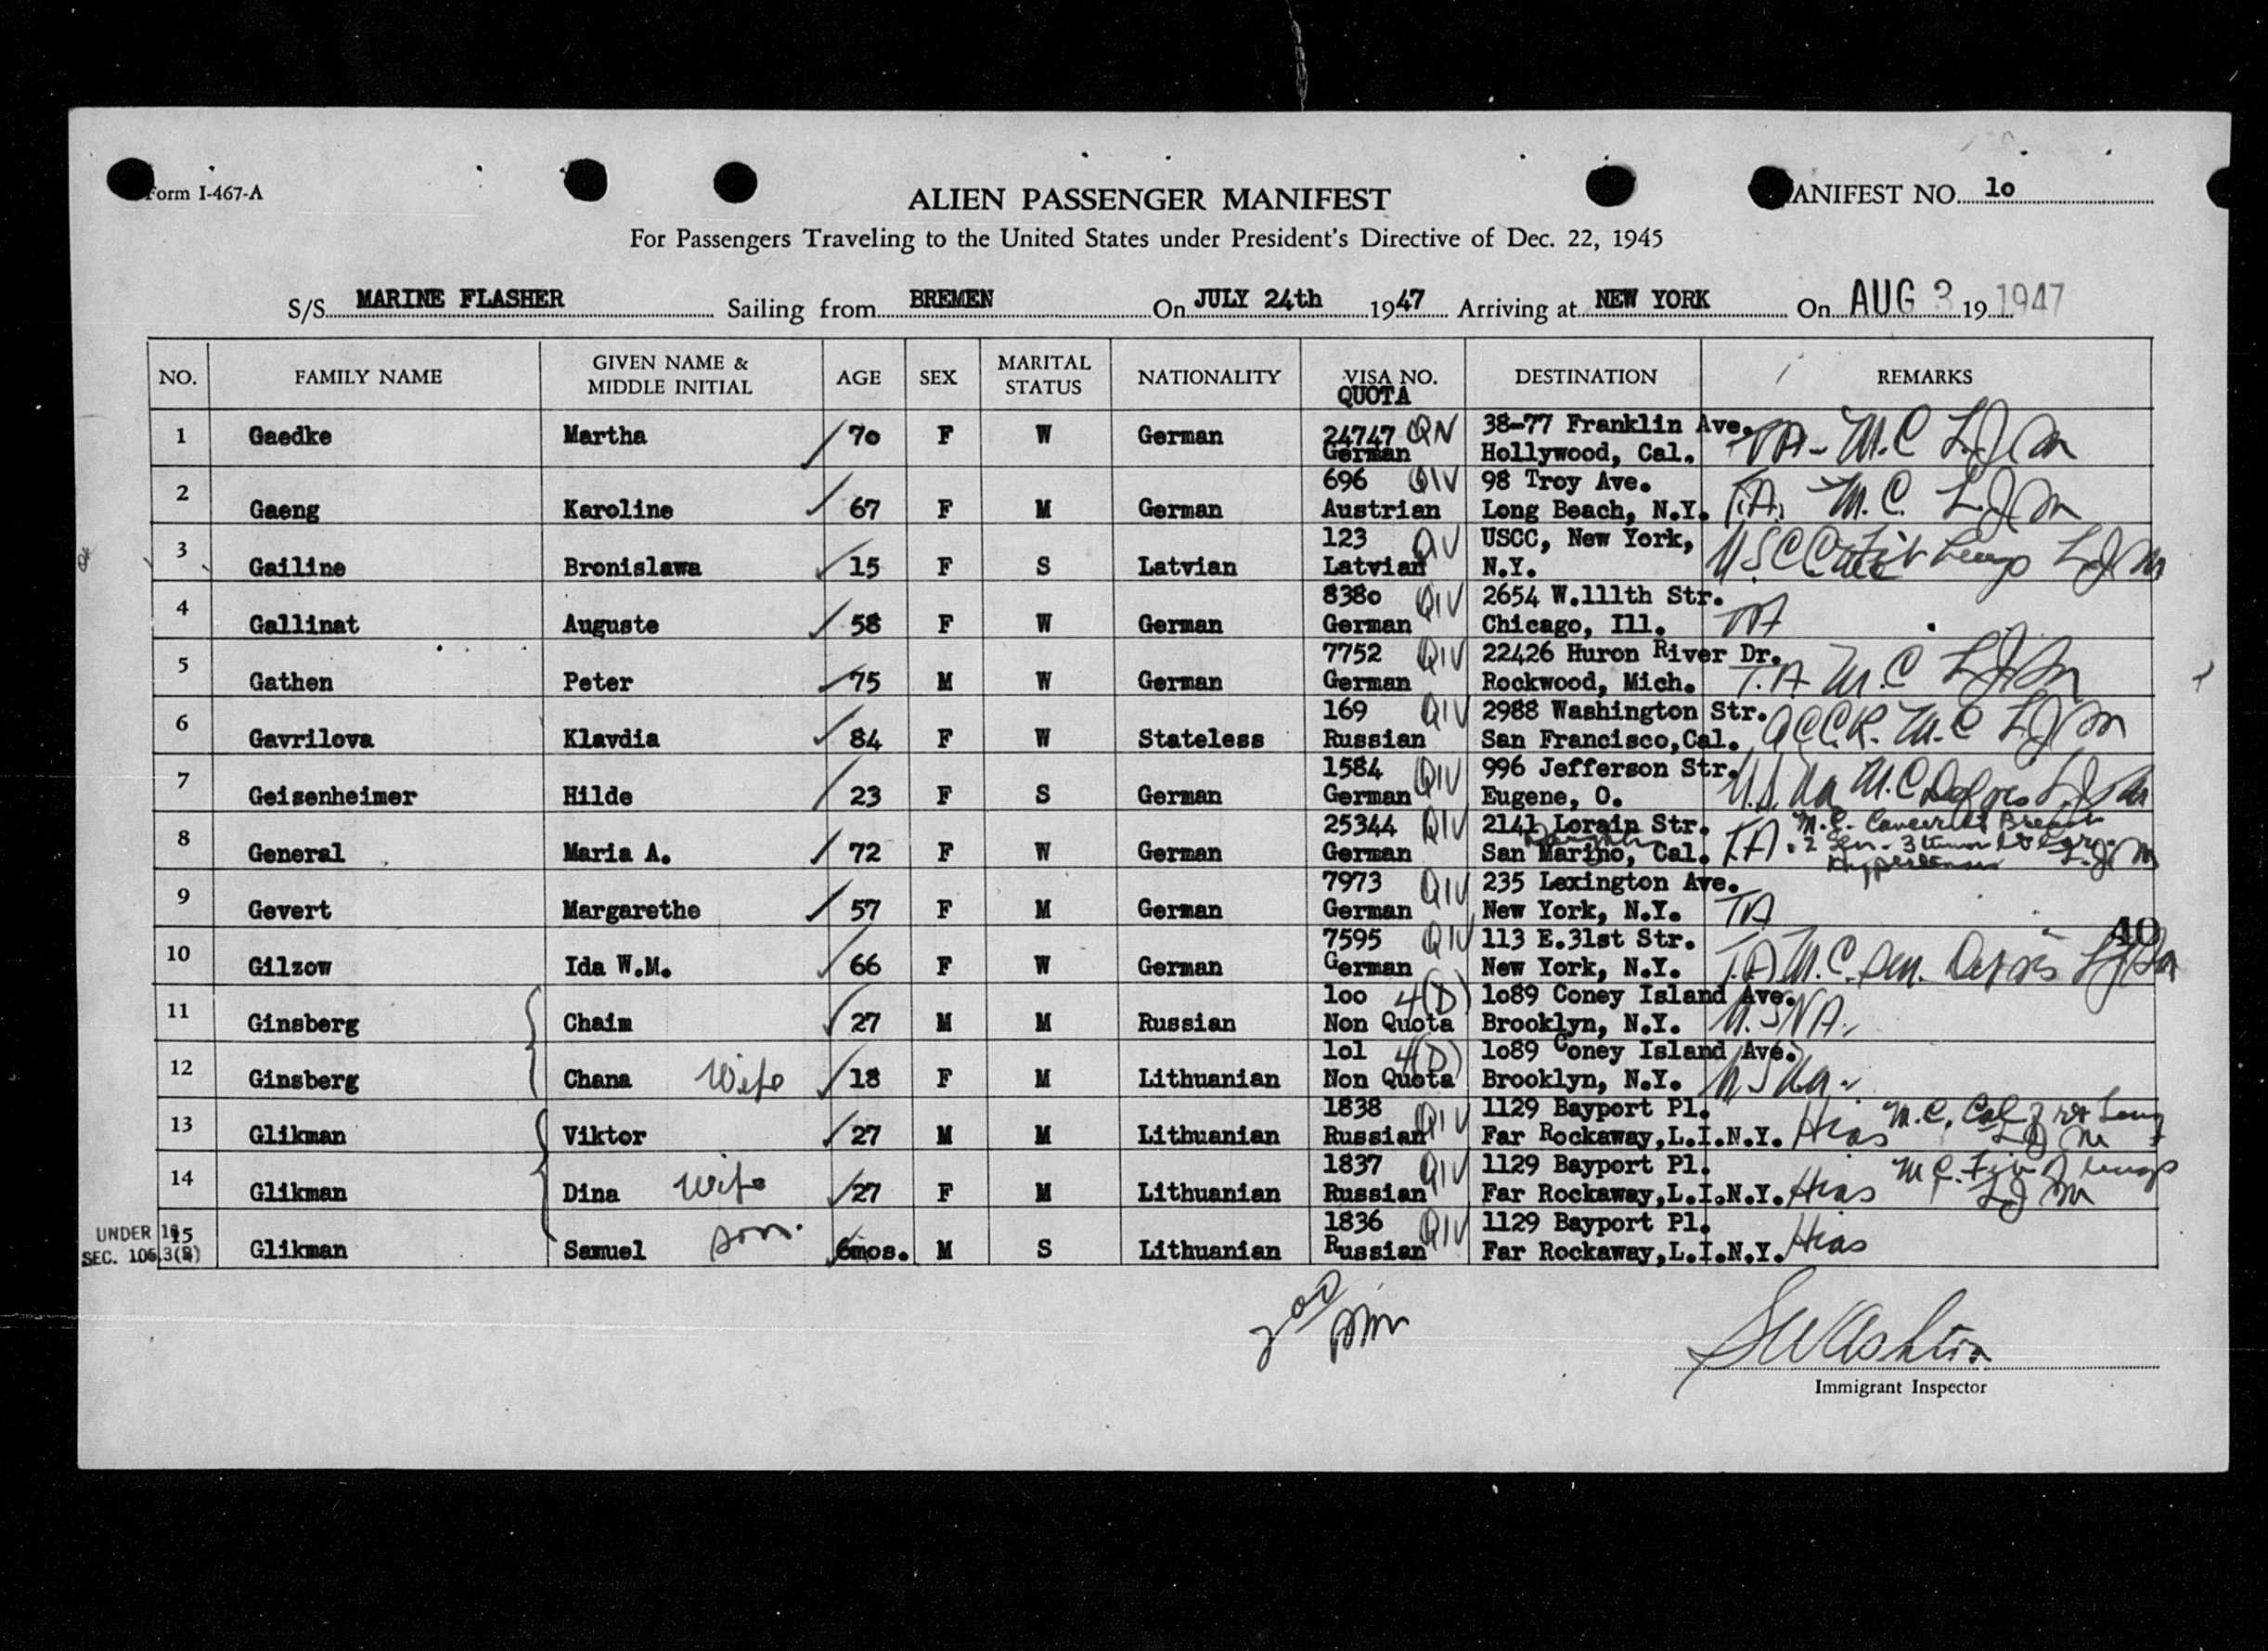 Form I-467-A
ALIEN PASSENGER MANIFEST
MANIFEST NO. 1o
For Passengers Traveling to the United States under President's Directive of Dec. 22, 1945
S/S MARINE FLASHER Sailing from BREMEN On JULY 24th 1947 Arriving at NEW YORK On AUG 3 19 1947
NO. FAMILY NAME GIVEN NAME & MIDDLE INITIAL AGE SEX MARITAL STATUS NATIONALITY VISA NO. QUOTA DESTINATION REMARKS
1 Gaedke Martha 7o F W German 24747 QIV German 38-77 Franklin Ave. Hollywood, Cal. TA- M.C LJM
2 Gaeng Karoline 67 F M German 696 QIV Austrian 98 Troy Ave. Long Beach, N.Y. T.A. M.C. LJM
3 Gailine Bronislawa 15 F S Latvian 123 QIV Latvian USCC, New York, N.Y. USCC LJM
4 Gallinat Auguste 58 F W German 838o QIV German 2654 W.111th Str. Chicago, Ill. TA
5 Gathen Peter 75 M W German 7752 QIV German 22426 Huron River Dr. Rockwood, Mich. T.A M.C LJM
6 Gavrilova Klavdia 84 F W Stateless 169 QIV Russian 2988 Washington Str. San Francisco,Cal. ACCR. M.C LJM
7 Geisenheimer Hilde 23 F S German 1584 QIV German 996 Jefferson Str. Eugene, O. M.C LJM
8 General Maria A. 72 F W German 25344 QIV German 2141 Lorain Str. San Marino, Cal. T.A. M.C. LJM
9 Gevert Margarethe 57 F M German 7973 QIV German 235 Lexington Ave. New York, N.Y. TA
40
10 Gilzow Ida W.M. 66 F W German 7595 QIV German 113 E.31st Str. New York, N.Y. T.A M.C. Sen. LJM
11 Ginsberg Chaim 27 M M Russian 1oo 4(D) Non Quota 1o89 Coney Island Ave. Brooklyn, N.Y. U.S.N.A.
12 Ginsberg Chana Wife 18 F M Lithuanian 1o1 4(D) Non Quota 1o89 Coney Island Ave. Brooklyn, N.Y. USNA.
13 Glikman Viktor 27 M M Lithuanian 1838 QIV Russian 1129 Bayport Pl. Far Rockaway,L.I.N.Y. Hias M.C. LJM
14 Glikman Dina wife 27 F M Lithuanian 1837 QIV Russian 1129 Bayport Pl. Far Rockaway,L.I.N.Y. Hias M.C. LJM
UNDER 16
SEC. 105.3(B)
15 Glikman Samuel son. 6mos. M S Lithuanian 1836 QIV Russian 1129 Bayport Pl. Far Rockaway,L.I.N.Y. Hias
Immigrant Inspector